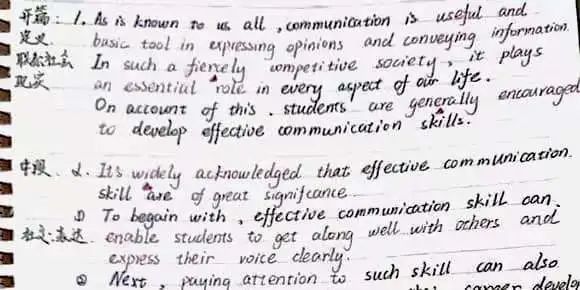 开篇: 1. As is known to us all, communication is useful and
定义 basic tool in expressing opinions and conveying information.
联系社会 In such a fiercely competitive society, it plays
现实 an essential role in every aspect of our life.
On account of this, students are generally encouraged
to develop effective communication skills.
中段. 2. Its widely acknowledged that effective communication
skill are of great signifcance
① To begain with, effective communication skill can
社交:表达. enable students to get along well with others and
express their voice clearly.
② Next, paying attention to such skill can also
career develo